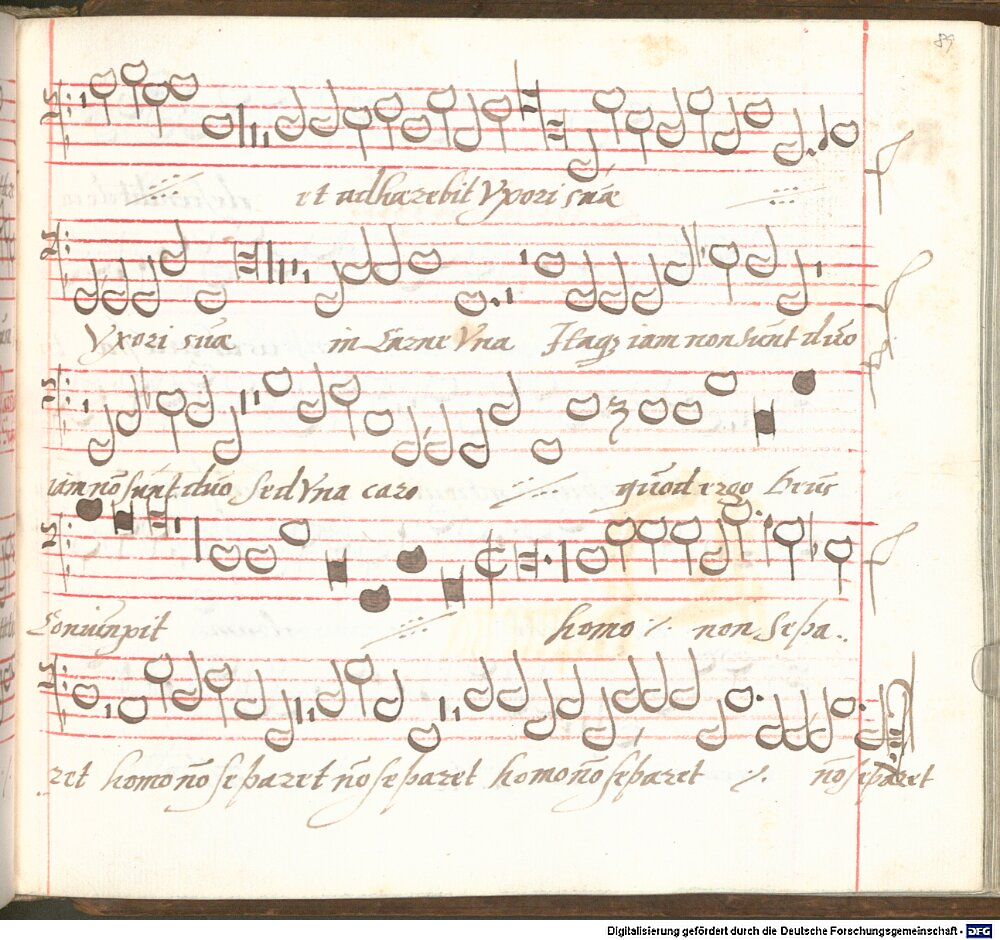 89
et adharebit Vxori suā
Vxori suā in Carne Vna Itaqȝ iam non sunt duo
iam nō sunt duo sed Vna caro quod ergo Deus
Coniunpit homo ٪ non sepa..
ret homo nō separet nō separet homo nō separet ٪ nō separet
Digitalisierung gefördert durch die Deutsche Forschungsgemeinschaft - DFG